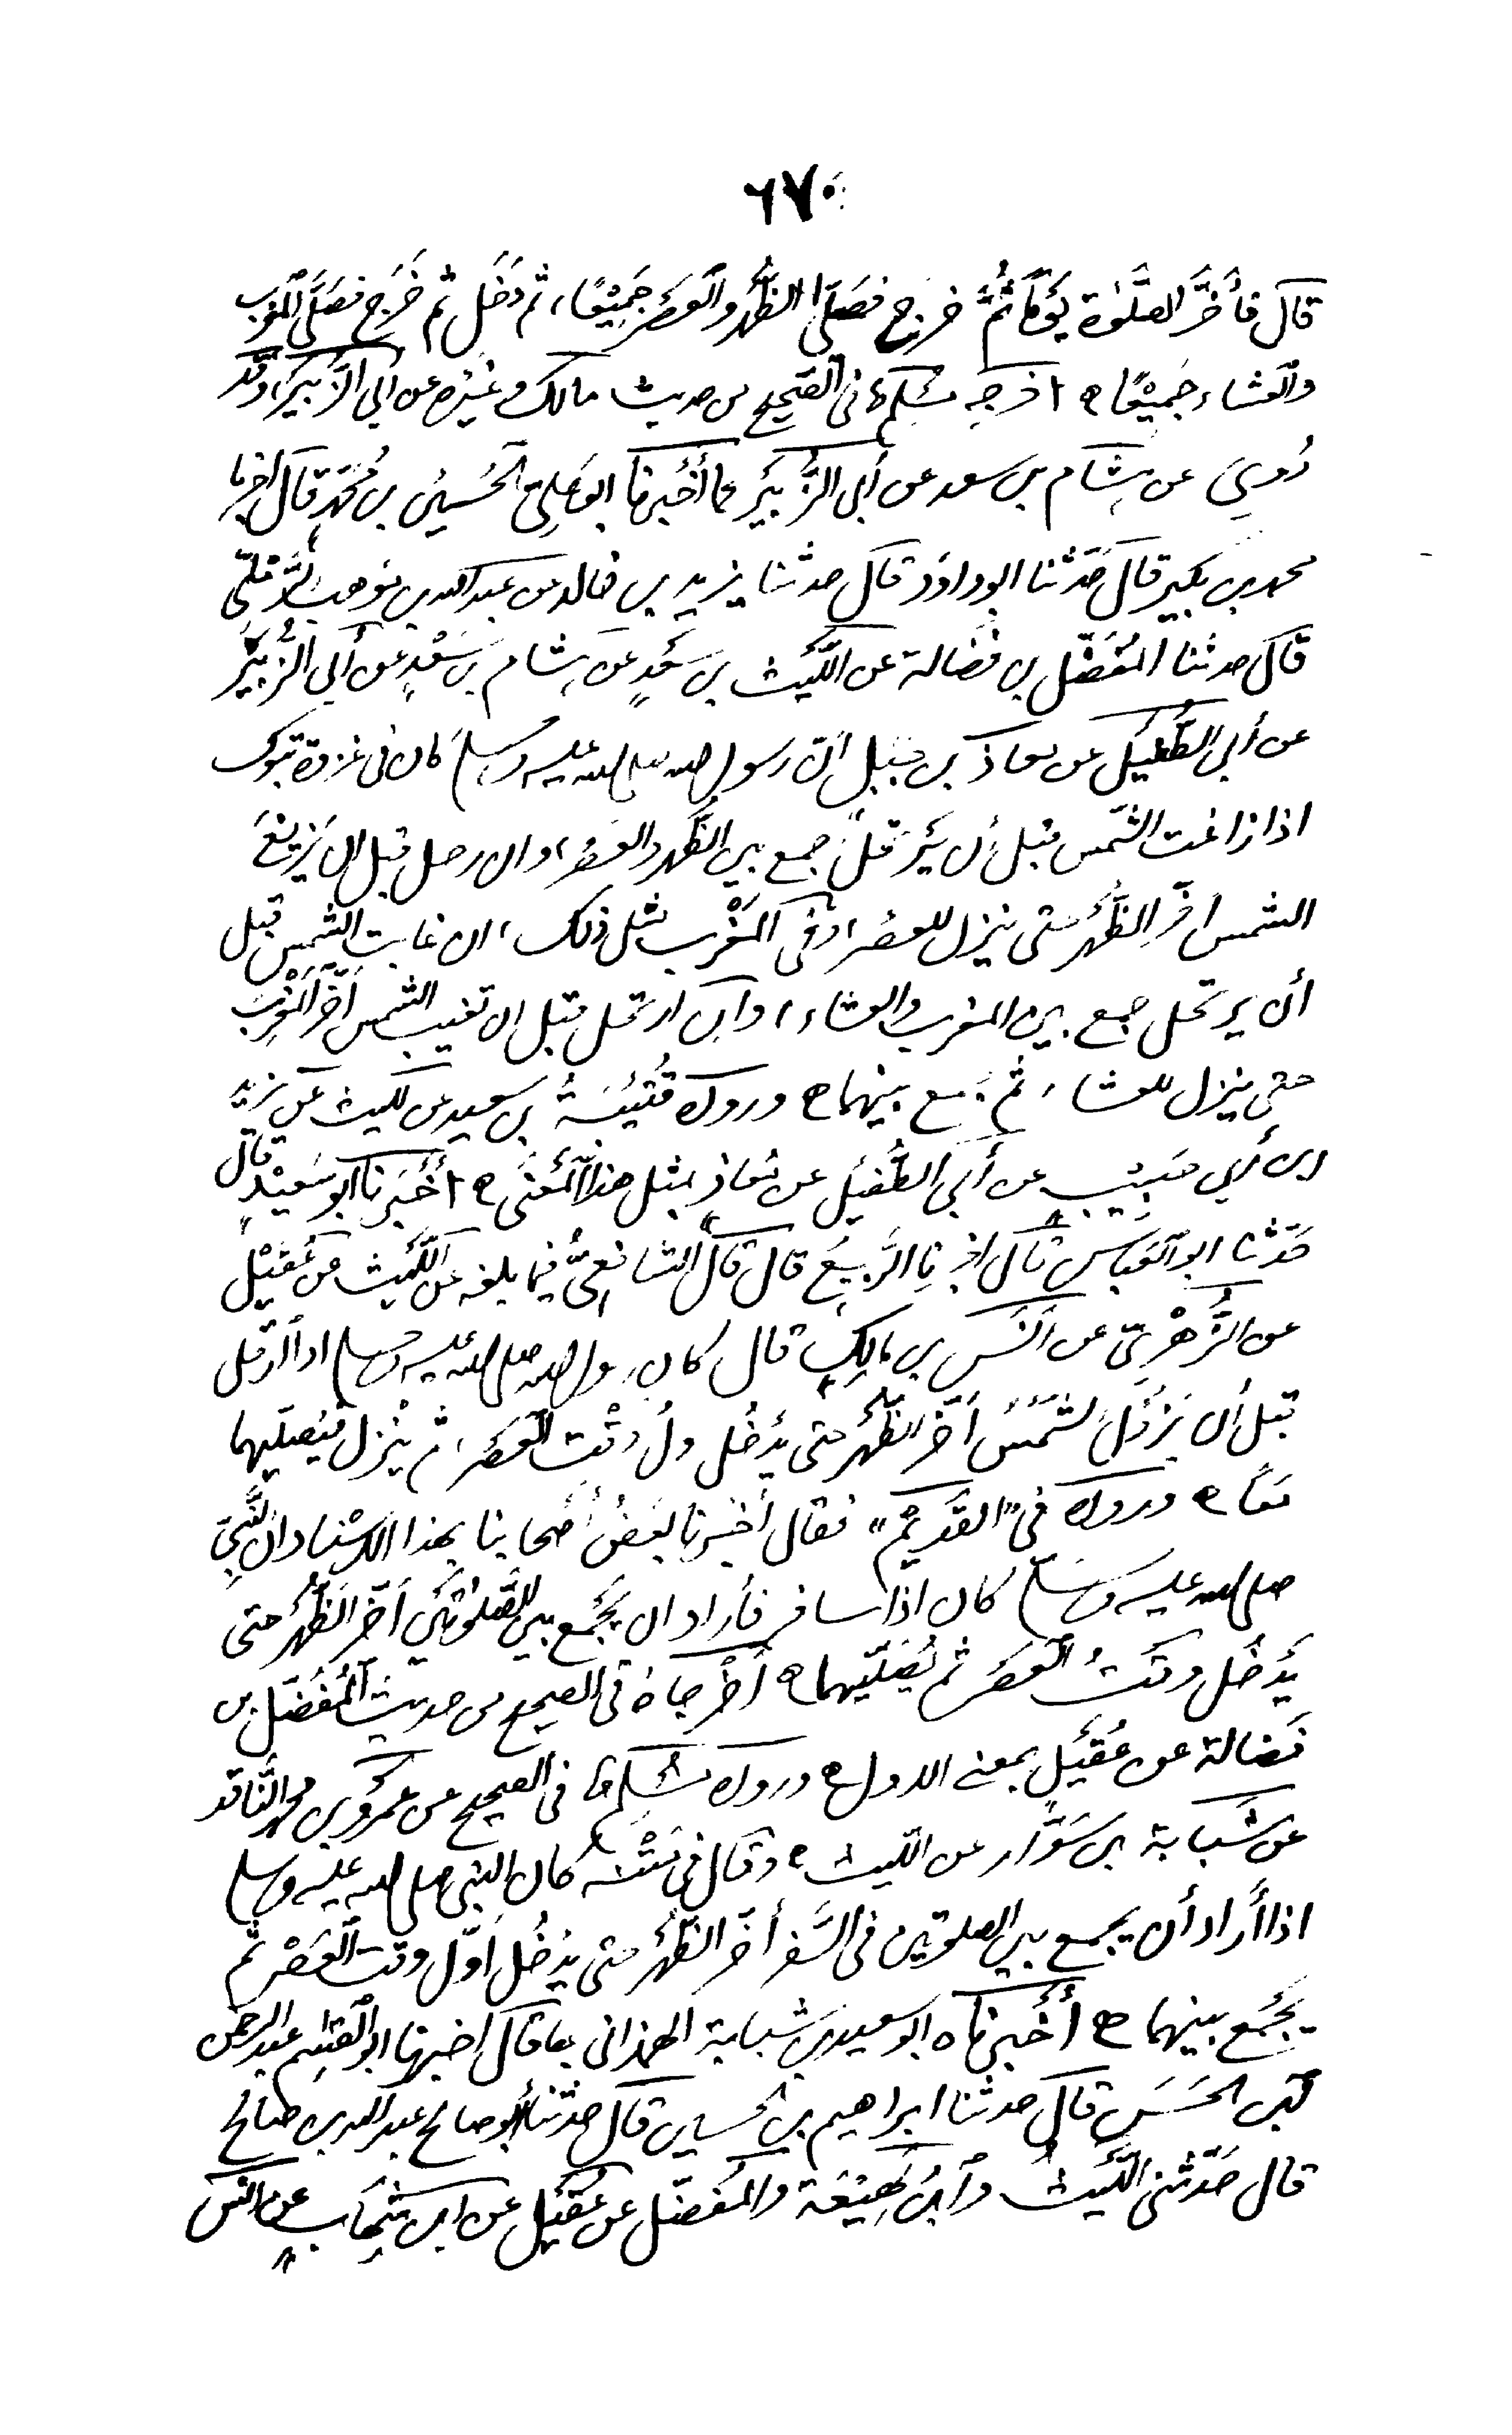 ٦٧٠
قال فأخَّر الصَّلوٰة يَوْمًا ثُمَّ خرج فصَلَّى الظُّهر والعَصْر جَمِيْعًا، ثم دَخَل ثم خَرَج فصَلَّى المغرب
والعشاء جَمِيْعًا ٥ اخرجه مُسْلِمٌ فى الصّحيح من حديث مالك وغيره عن أبى الزُّبَير، وقد
رُوِىَ عن هِشام بن سعد عن أبى الزُّبَيْر كما أَخْبرنا ابو عَلِىّ الحُسَين بن مُحمّدٍ قال اخبرنا
محمد بن بكير قال حَدّثنا ابو داود قال حدثنا يزيد بن خالد بن عبد الله بن مَوهب الرَّملىّ
قال حدثنا المُفَضّل بن فضالة عن اللّيث بن سَعْدٍ عن هِشام بن سَعْدٍ عن أبى الزُّبَيْر
عن أبى الطُّفَيْل عن معاذ بن جبل أنّ رسول الله صلى الله عليه وسلم كان فى غزوة تبوك
اذا زاغت الشّمس قبل أن يَرْتَحِلَ جمع بين الظُّهر والعَصْر، وان رحل قبل ان يَزِيْغَ
الشمس أخّر الظُّهْر حتى ينزل للعصر، وفى المَغْرب مثل ذلك، ان غابت الشّمس قبل
أن يرتحل جمع بين المغرب والعشاء، وان ارتحل قبل ان تغيب الشّمس أخّر المَغْرِبَ
حتى ينزل للعشاء، ثم جمع بينهما ٥ ورواه قُتَيْبَةُ بن سعيد عن الليث عن يزيد
ابن أبى حَبِيْبٍ عن أبى الطُّفَيْل عن مُعاذٍ بمثل هذا المَعْنى ٥ أَخْبَرنا ابو سَعِيْدٍ قال
حَدّثنا ابو العَبّاس قال اخبرنا الرَّبِيعُ قال قال الشافِعِىُّ فيما بلغه عن اللَّيْث عن عُقَيْلٍ
عن الزُّهْرِىّ عن أنَس بن مالِكٍ قال كان رسول الله صلى الله عليه وسلم اذا ارتحل
قبل أن يَزُوْلَ الشَّمْسُ أخّر الظُّهْر حتى يَدْخُل اول وقْت العَصْر، ثم يَنْزل فيُصلّيهما
معًا ٥ ورواه فى "القَدِيْم" فقال أخبرنا بعَضُ أصحابنا بهذا الاسْناد ان النَّبِىّ
صلى الله عليه وسلم كان اذا سافر فأراد ان يَجْمع بين الصَّلوٰتَيْن أخّر الظُّهْر حتى
يَدْخُل وقتُ العَصْر ثم يُصَلّيهما ٥ أَخْرجاهُ فى الصحيح من حديث المُفَضّل بن
فَضالة عن عُقَيْل بمعنى الاول ٥ ورواه مُسْلِمٌ فى الصحيح عن عَمْرو بن محمدٍ النّاقد
عن شَبابة بن سَوَّار عن اللّيث ٥ وقال فى مَتْنه كان النبى صلى الله عليه وسلم
اذا أراد أن يجمع بين الصلوتين فى السَّفر أخّر الظّهْر حتى يَدْخُل اوّل وقت العَصْر ثم
يَجْمع بينهما ٥ أَخْبرناه ابو سعيد بن شبابة الهمذانى بها قال اخبرنا ابو القٰسِم عبد الرحمن
ابن الحَسَن قال حدثنا ابراهيم بن الحسين قال حدثنا أبو صالح عبد الله بن صالح
قال حَدّثنى اللَّيثُ وابن لَهِيْعَة والمُفضّل عن عُقَيْل عن ابن شِهابٍ عن انس